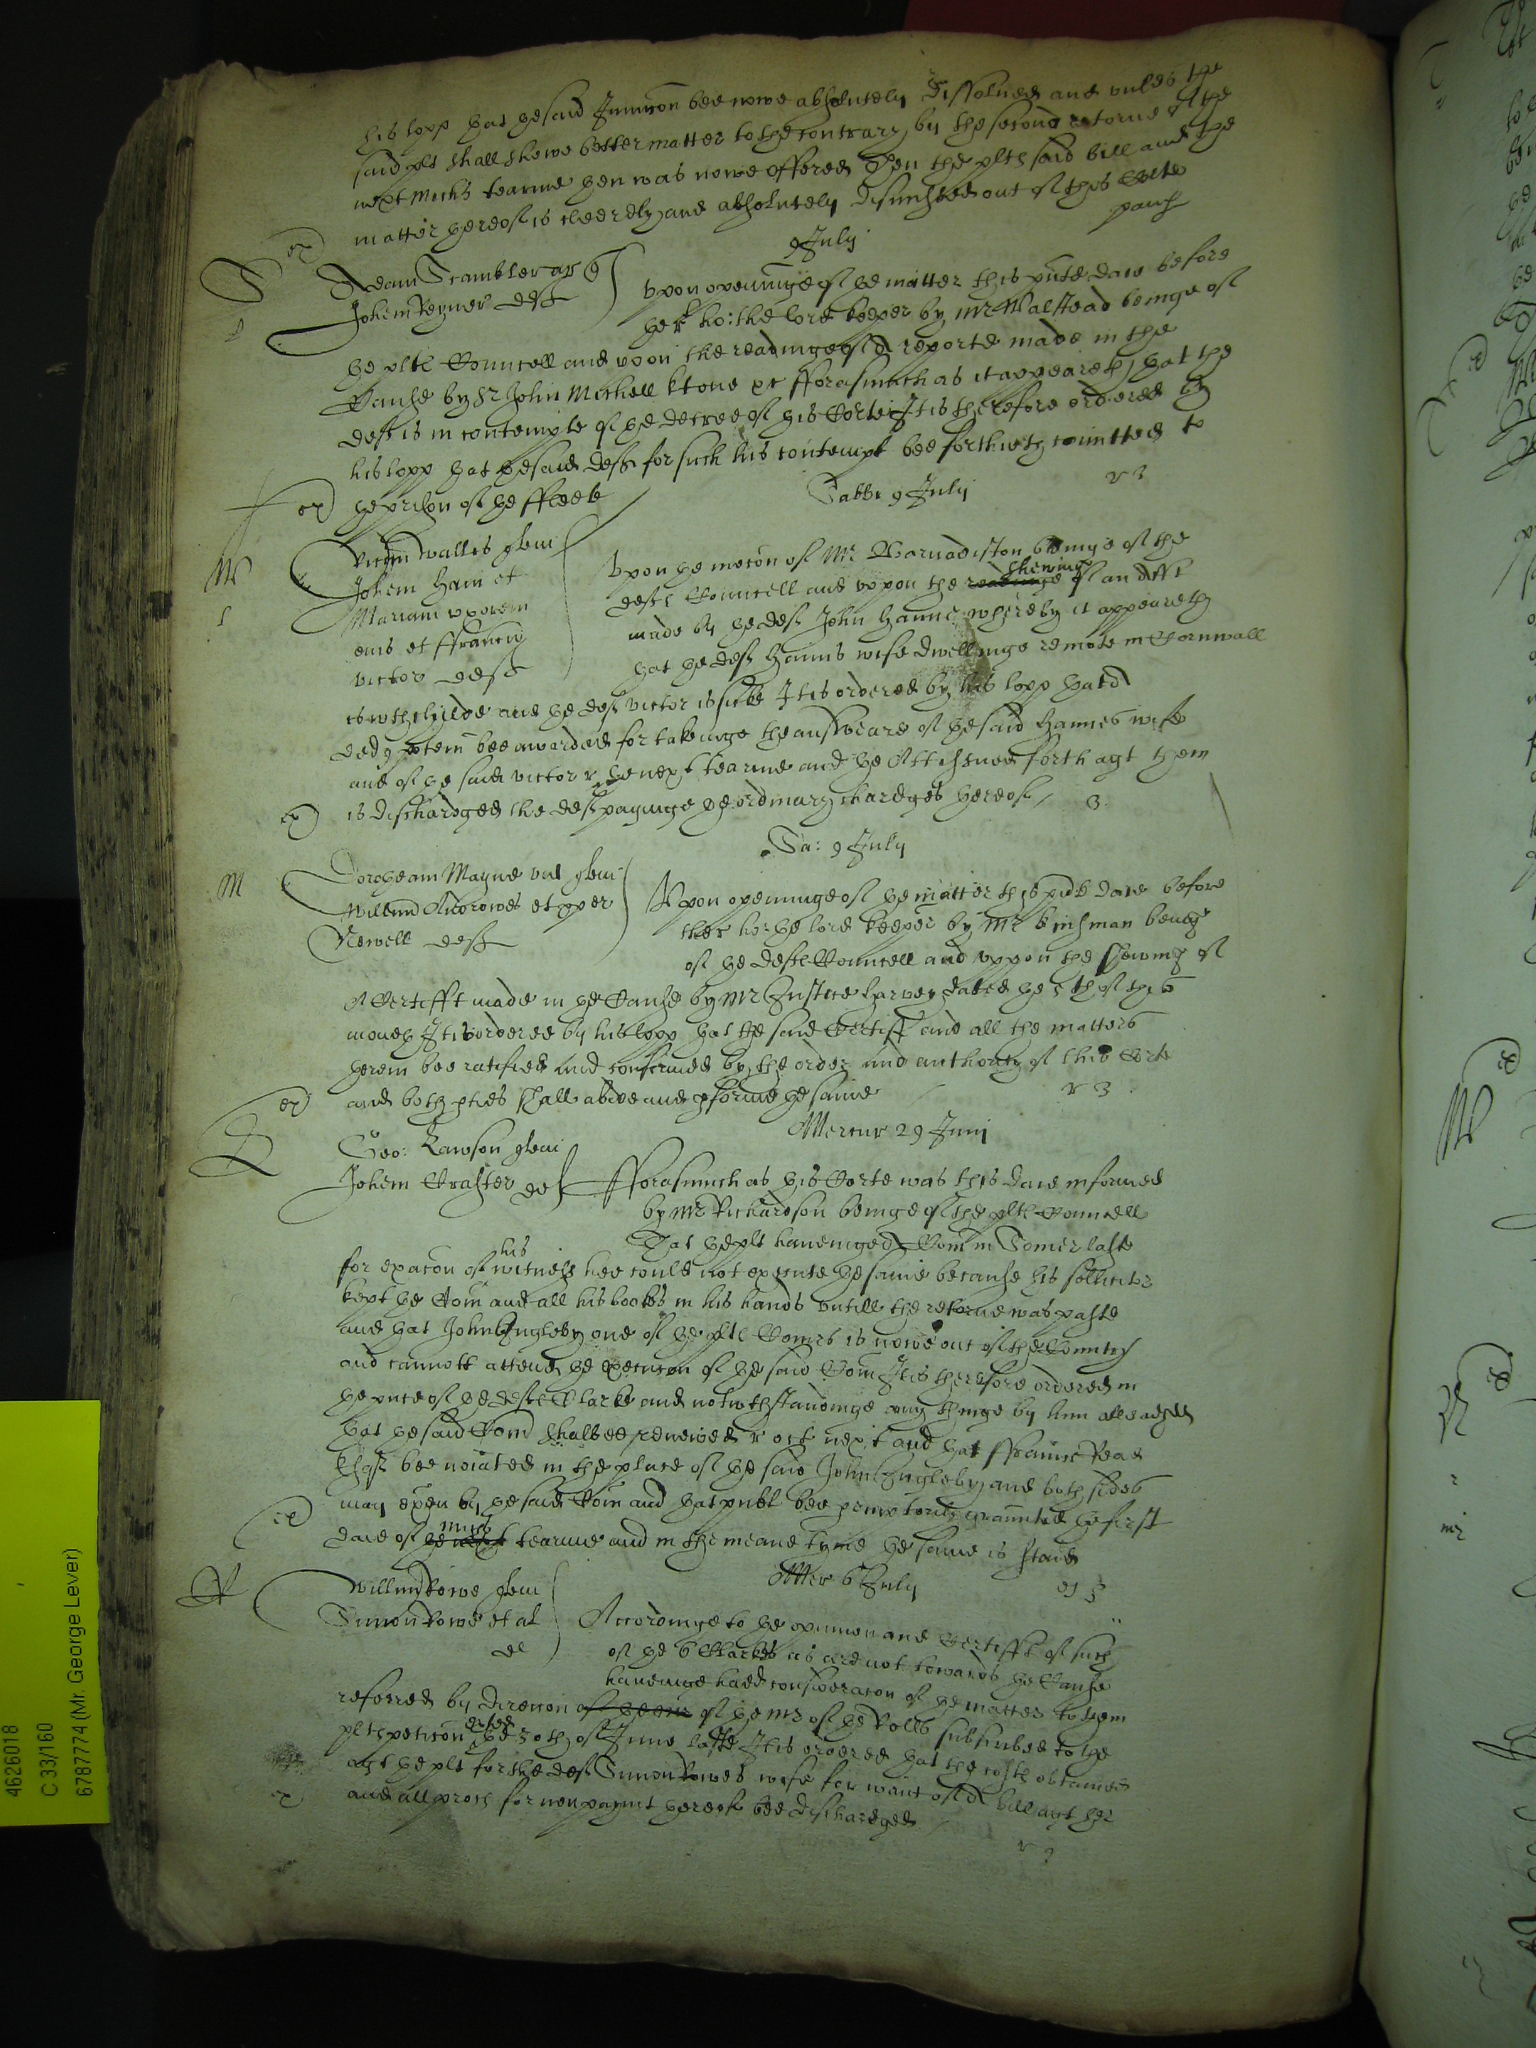 his lopp that the said Iniuncon bee nowe absolutely dissolued and vnles the
said plt shall shewe better matter to the contrary by the second retorne of the
next Michs tearme then was nowe offered Then the plts said bill and the
matter thereof is cleerely and absolutely dismissed out of this Corte
9 July
Adam Scambler ar
Johem deft
Vpon openinge of the matter this pnte daie before
the r. ho: the lord keeper by Mr Walstead beinge of
the plts Councell and vpon the readinge of a reporte made in the
Cause by Sr John Michell kt one &c fforasmuch as it appeareth that the
deft is in contempte of the decree of this Corte It is therefore ordered by
his lopp that the said deft for such his contempt bee forthwith comitted to
the prison of the ffleete
Sabbi 9 July
Wallis quer
Johem Hann et
Mariam vxorem
eius et ffrancis
Victor deft
Vpon the mocon of Mr Barnadiston beinge of the
defts Councell and vppon the readinge shewing of an afft
made by the deft John Hanne whereby it appeareth
that the deft Hanns wife dwellinge remote in Cornwall
is wth childe and the deft Victor is sicke It is ordered by his lopp that a
ded potem bee awarded for takinge the answeare of the said Hannes wife
and of the said Victor r the next tearme and the Att issued forth agt them
is dischardged the deft payinge the ordinary chardges thereof 3
Sa: 9 July
Dorotheam Mayne vid quer
Willm Andrewes et
Newell deft
Vpon openinge of the matter this pnte daie before
the r ho: the lord keeper by Mr Kinsman being
of the defts Councell and vppon the shewing of
A Certifft made in the Cause by Mr Justice Harvey dated the 5th of this
moneth It is ordered by his lopp that the said Certiff and all the matters
therein bee ratified and confirmed by the order and authority of this Corte
and both pties shall abide and pforme the same
r 3
Mercur 29 Junij
Geo: Lawson quer
Johem Craster deft
fforasmuch as this Corte was this daie informed
by Mr Richardson beinge of the plts Councell
That the plt haveinge a Com in Somer laste
for exacon of his witnesses hee could not execute the same because his sollicitor
kept the Com and all his bookes in his hands vntill the retorne was paste
and that John Ingleby one of the plts Comrs is nowe out of the Countrey
and cannott attend the execucon of the said Com It is therefore ordered in
the pnce of the defts Clarke and notwthstandinge any thinge by him alleadged
that the said Com shalbee renewed r oct next and that ffrancis Read
bee noiated in the place of the said John Ingleby and both sides
may exen by the said Com and that publ bee peremptorily graunted the first
daie of the next Michs tearme and in the meane tyme the same is staied
Mer 6 July
Willm Rowe quer
Simon Rowe et al
de
Accordinge to the opinion and Certifft of such
of the 6 Clarkes as are not towards the Cause
haveinge had consideracon of the matter to them
referred by direccon of the mr of the Rolls subscribed to the
plts peticon dated the 30th of June laste It is ordered that the costs obtained
agt the plt for the deft Simon Rowes wife for want of a bill agt her
and all proces for non paymt thereof bee dischardged
r 3
4626018
C 33/160
6787774 (Mr. George Lever)